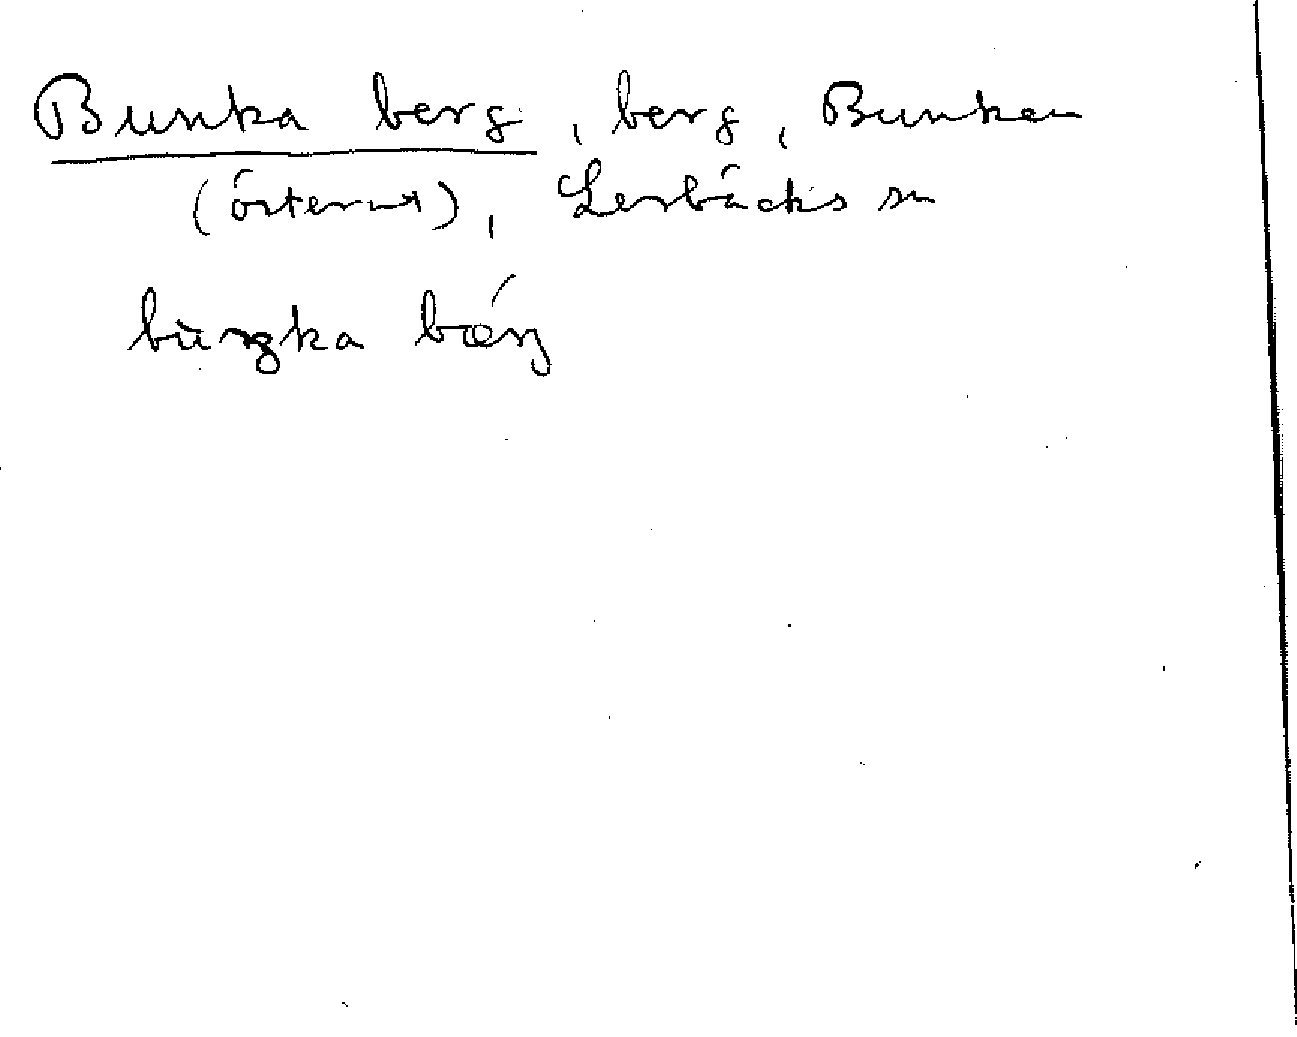 Bunka berg, berg, Bunken
(österut), Lerbäcks sn
bùŋka bærj